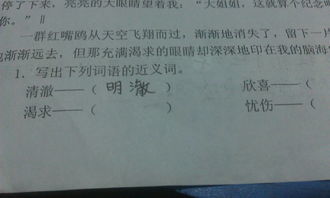 停了下来，亮亮的大眼睛望着我：“大姐姐，这就算个纪念
你。”‖
一群红嘴鸥从天空飞翔而过，渐渐地消失了，留下一片
地渐渐远去，但那充满渴求的眼睛却深深地印在我的脑海
1．写出下列词语的近义词。
清澈——（ 明澈 ） 欣喜——（
渴求——（ ） 忧伤——（